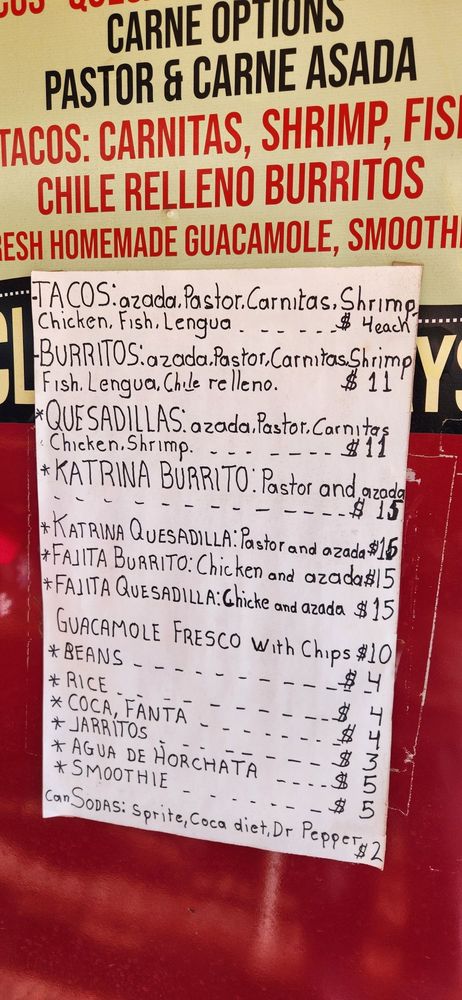 CARNE OPTIONS
PASTOR & CARNE ASADA
TACOS: CARNITAS, SHRIMP, FIS
CHILE RELLENO BURRITOS
RESH HOMEMADE GUACAMOLE, SMOOTHI
-TACOS: azada, Pastor, Carnitas, Shrimp,
Chicken, Fish, Lengua - - - - - $ 4each
-BURRITOS: azada, Pastor, Carnitas, Shrimp
Fish, Lengua, Chile relleno. $ 11
*QUESADILLAS: azada, Pastor, Carnitas
Chicken, Shrimp. - - - - - - - $ 11
*KATRINA BURRITO: Pastor and azada
- - - - - - - - - - - - $ 15
*KATRINA QUESADILLA: Pastor and azada $15
*FAJITA BURRITO: Chicken and azada $15
*FAJITA QUESADILLA: Chicke and azada $15
GUACAMOLE FRESCO with Chips $10
*BEANS - - - - - - - - - - $ 4
*RICE - - - - - - - - - - $ 4
*COCA, FANTA - - - - - - - $ 4
*JARRITOS - - - - - - - - $ 3
*AGUA DE HORCHATA - - - - $ 5
*SMOOTHIE - - - - - - - $ 5
can SODAS: Sprite, Coca diet, Dr Pepper $2